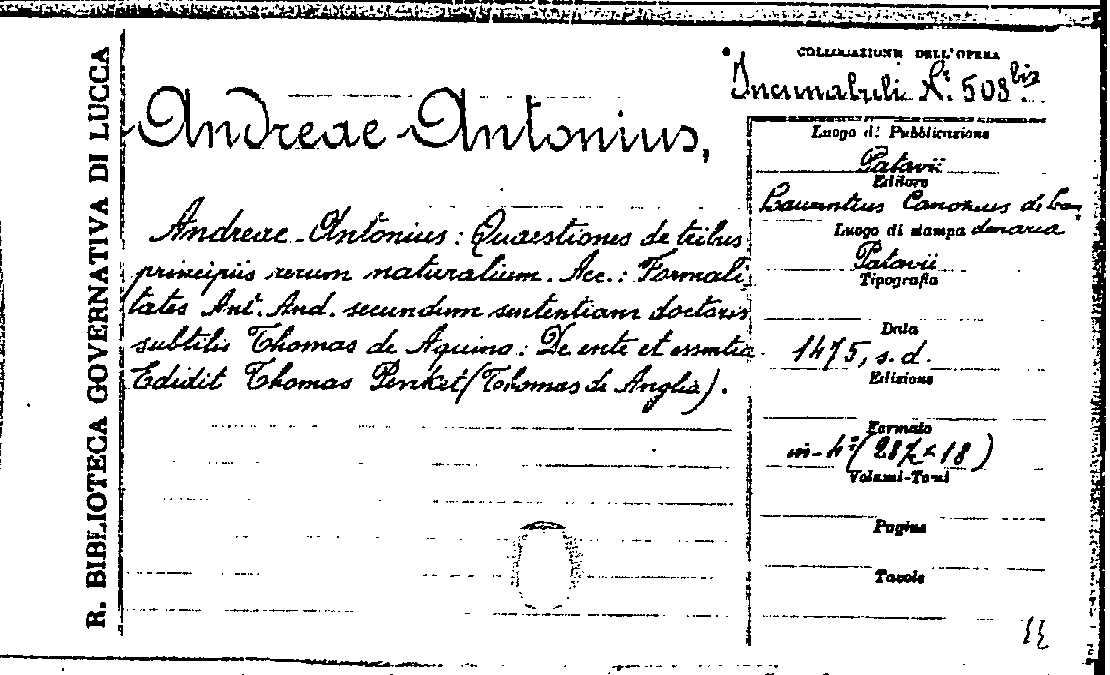 R. BIBLIOTECA GOVERNATIVA DI LUCCA
Andreae Antonius,
Andreae Antonius: Quaestiones de tribus
principiis rerum naturalium. Acc.: Formali
tates Ant. And. secundum sententiam doctoris
subtilis Thomas de Aquino: De ente et essentia
Edidit Thomas Penket (Thomas de Anglia).
COLLOCAZIONE DELL'OPERA
Incunabuli N.º 508 bis
Luogo di Pubblicazione
Patavii
Editore
Laurentius Canozius de Len
Luogo di stampa denaria
Patavii
Tipografia
Data
1475, s. d.
Edizione
Formato
in-4º (28 × 18)
Volumi-Tomi
Pagine
Tavole